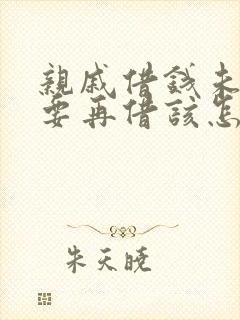 親戚借錢未
要再借該怎
朱天曉